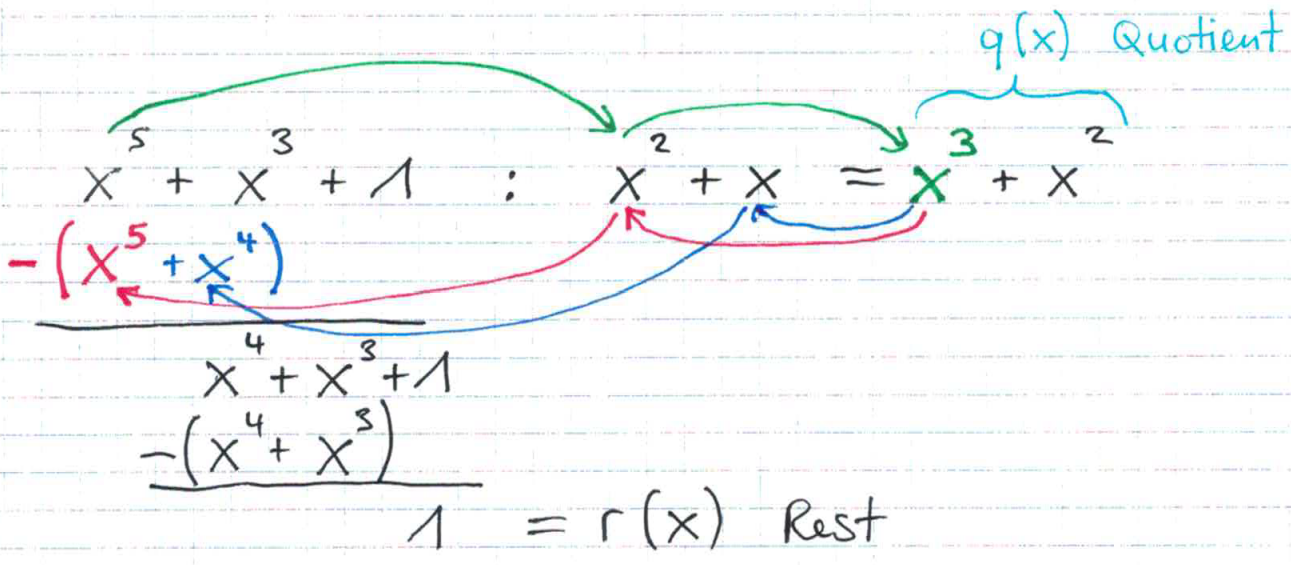 q(x) Quotient
x⁵ + x³ + 1 : x² + x = x³ + x²
-(x⁵ + x⁴)
x⁴ + x³ + 1
-(x⁴ + x³)
1 = r(x) Rest